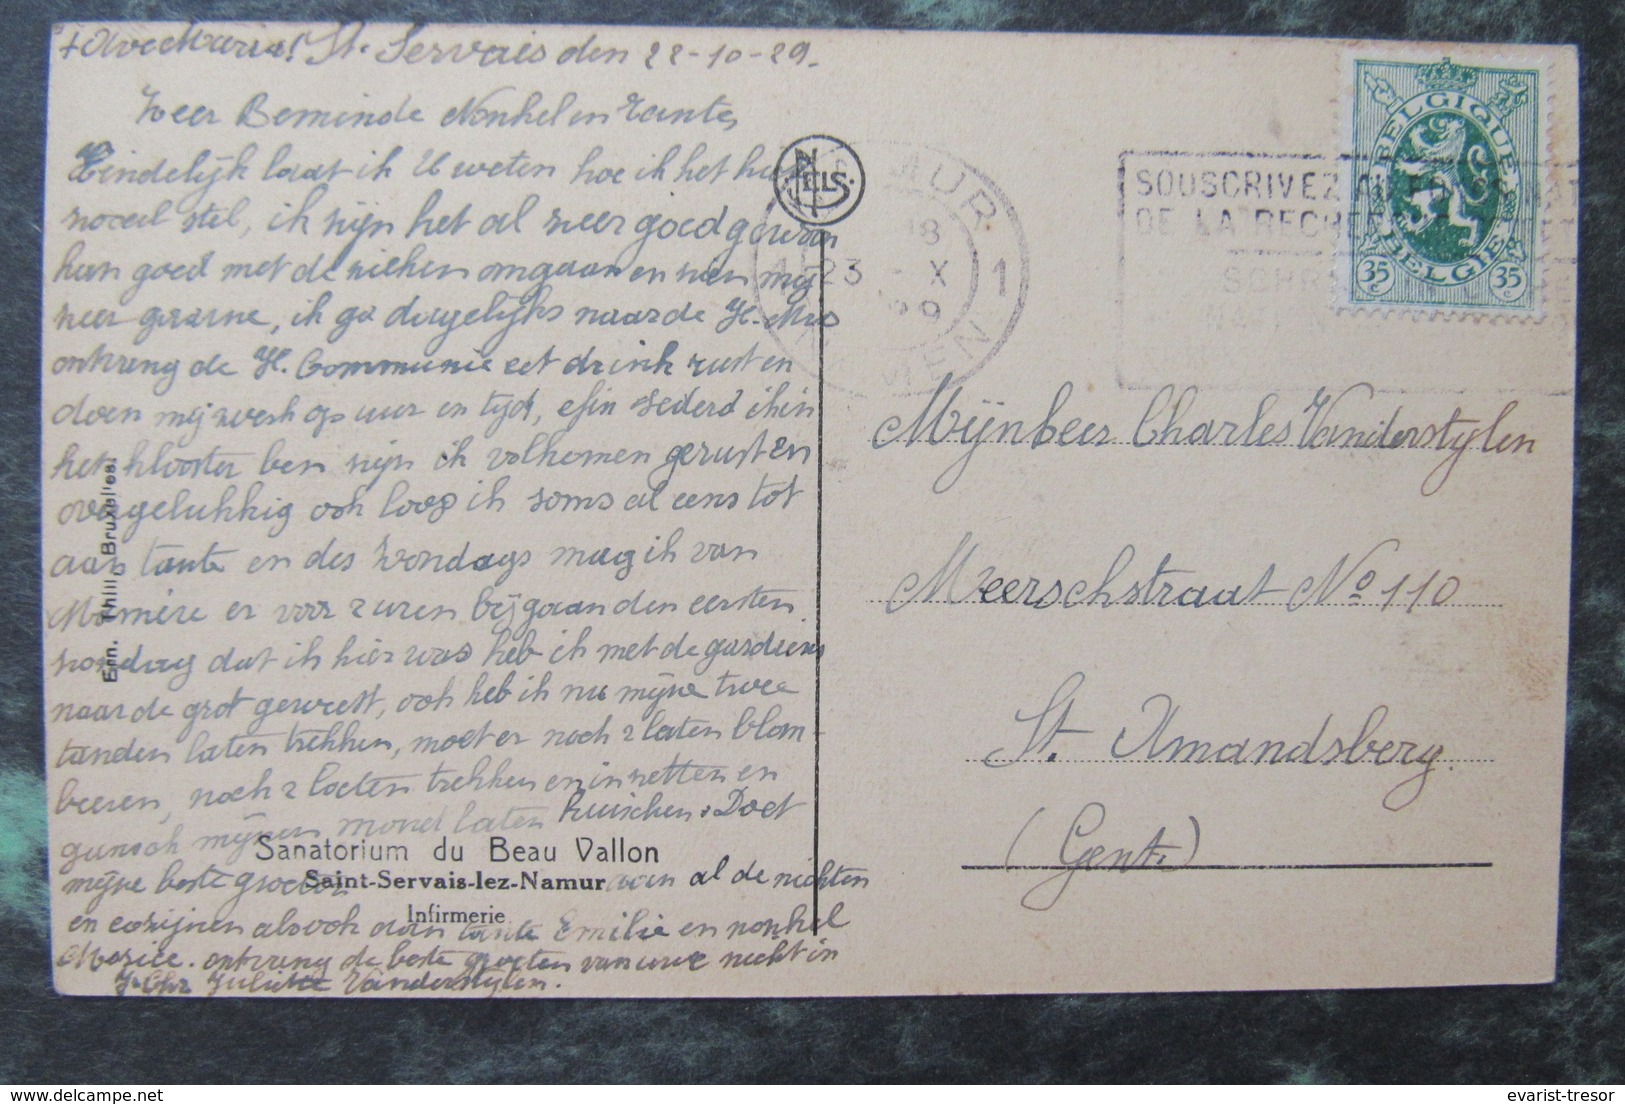 + Ave Maria! St. Servais den 22-10-29.
Zeer Beminde Nonkel en Tante,
Eindelijk laat ik U weten hoe ik het hier
stel, ik zijn het al zeer goed gewoon
kan goed met de zieken omgaan en zien mij
zeer gaarne, ik ga dagelijks naar de H. Mis
ontvang de H. Communie eet drink rust en
doen mij werk op uur en tijd, efin sederd ik in
het klooster ben zijn ik volkomen gerust en
overgelukkig ook loop ik soms al eens tot
aan tante en des Zondags mag ik van
Mamére er voor 2 uren bij gaan den eersten
zondag dat ik hier was heb ik met de
naar de grot geweest, ook heb ik nu mijne twee
tanden laten trekken, moet er noch 2 laten blom-
beeren, noch 2 laeten trekken en inzetten en
gansch mijnen mond laten kuischen. Doet
mijne beste groeten aan al de nichten
en cozijnen alsook aan tante Emilie en nonkel
ontvang de beste groeten van uwe nicht in
J. Chr Juliette Vanderstylen.
Sanatorium du Beau Vallon
Saint-Servais-lez-Namur
Infirmerie
Ern. Thill, Bruxelles.
NELS
NAMUR 1
18
23 X
29
NAMEN
SOUSCRIVEZ AU FONDS
DE LA RECHER
SCHR
BELGIQUE
BELGIË
35 c
35 c
Mijnheer Charles Vanderstylen
Meerschstraat No 110
St. Amandsberg.
(Gent.)
evarist-tresor
www.delcampe.net